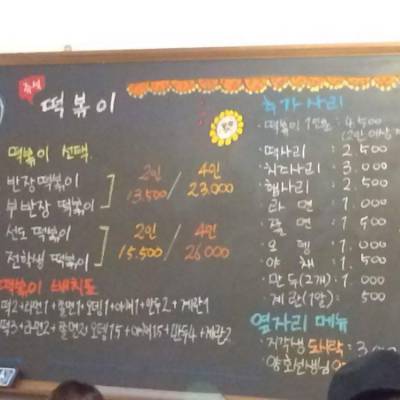 즉석
떡볶이
떡볶이 선택
2인 4인
반장떡볶이
13.500 / 23.000
부반장 떡볶이
2인 4인
선도 떡볶이
15.500 / 26.000
전학생 떡볶이
떡볶이 배치도
떡2+라면1+쫄면1+오뎅1+야채1+만두2+계란1
떡3+라면2+쫄면2+오뎅1.5+야채1.5+만두4+계란2
추가사리
떡볶이 1인분 : 4.500
(2인 이상
떡사리 : 2.500
치즈사리 : 3.000
햄사리 : 2.500
라면 : 1.000
쫄면 : 1.500
오뎅 : 1.000
야채 : 1.500
만두(2개) : 1.000
계란(1알) : 500
옆자리 메뉴
지각생 도시락 :
양호선생님